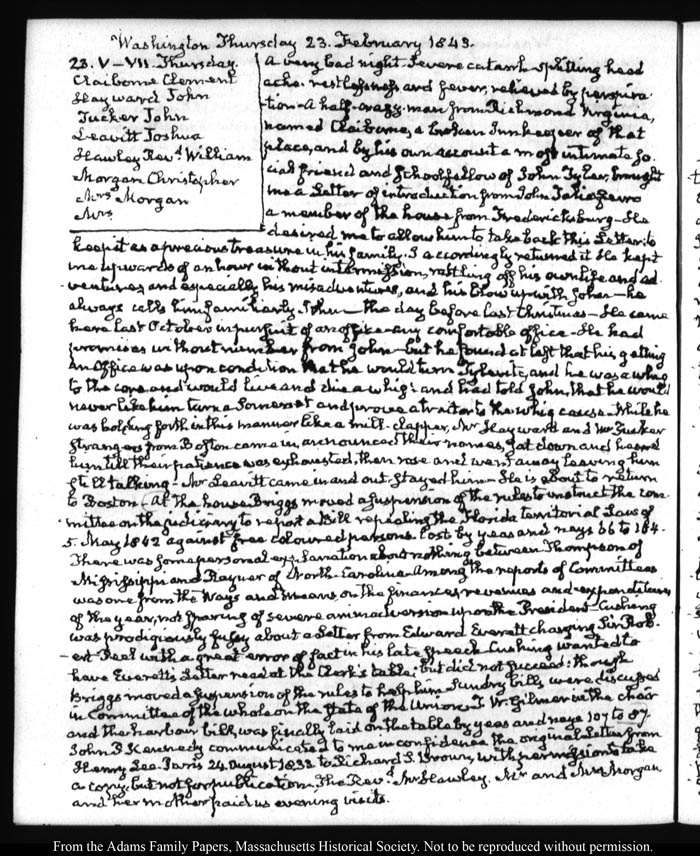 Washington Thursday 23. February 1843.
23. V–VII. Thursday.
Claiborne Clement
Hayward John
Tucker John
Leavitt Joshua
Hawley Rev.d William
Morgan Christopher
Mrs Morgan
Mrs
A very bad night. Severe catarrh splitting head
ache. restlessness and fever, relieved by perspira-
tion – A half-crazy man from Richmond Virginia,
named Claiborne, a broken Innkeeper of that
place, and by his own account a most intimate so-
cial friend and Schoolfellow of John Tyler, brought
me a Letter of introduction from John Taliaferro
a member of the house from Fredericksburg – He
desired me to allow him to take back this Letter to
keep it as a precious treasure in his family. I accordingly returned it. He kept
me upwards of an hour without intermission, rattling off his own life and ad-
ventures and especially his misadventures, and his blow up with John – he
always calls him familiarly John – the day before last Christmas – He came
here last October in pursuit of an office – any comfortable office – He had
promises without number from John – but he found at last that his getting
an Office was upon condition that he would turn Tylerite, and he was a whig
to the core and would live and die a whig: and had told John, that he would
never like him turn a Somerset and prove a traitor to the whig cause. While he
was holding forth in this manner like a mill-clapper, Mr Hayward and Mr Tucker
strangers from Boston came in, announced their names, sat down and heard
him till their patience was exhausted, then rose and went away leaving him
still talking – Mr Leavitt came in and out stayed him – He is about to return
to Boston. At the house Briggs moved a suspension of the rules to instruct the com-
mittee on the judiciary to report a bill repealing the Florida territorial Law of
5. May 1842 against free coloured persons. lost by yeas and nays 66 to 104.
There was some personal explanation about nothing between Thompson of
Mississippi and Rayner of North-Carolina. Among the reports of Committees
was one from the Ways and Means on the finances revenues and expenditures
of the year, not sparing of severe animadversion upon the President – Cushing
was prodigiously fussy about a Letter from Edward Everett charging Sir Rob-
ert Peel with a great error of fact in his late speech. Cushing wanted to
have Everett's Letter read at the Clerk's table; but did not succeed: though
Briggs moved a suspension of the rules to help him. Sundry bills were discussed
in Committee of the whole on the state of the Union T. W. Gilmer in the chair
and the harbour bill, was finally laid on the table by yeas and nays 107 to 87.
John P. Kennedy communicated to me in confidence the original Letter from
Henry Lee Paris 24. August 1833 to Richard T. Brown, with permission to take
a copy, but not for publication. The Rev.d Mr Hawley. Mr and Mrs Morgan
and her mother paid us evening visits.
From the Adams Family Papers, Massachusetts Historical Society. Not to be reproduced without permission.